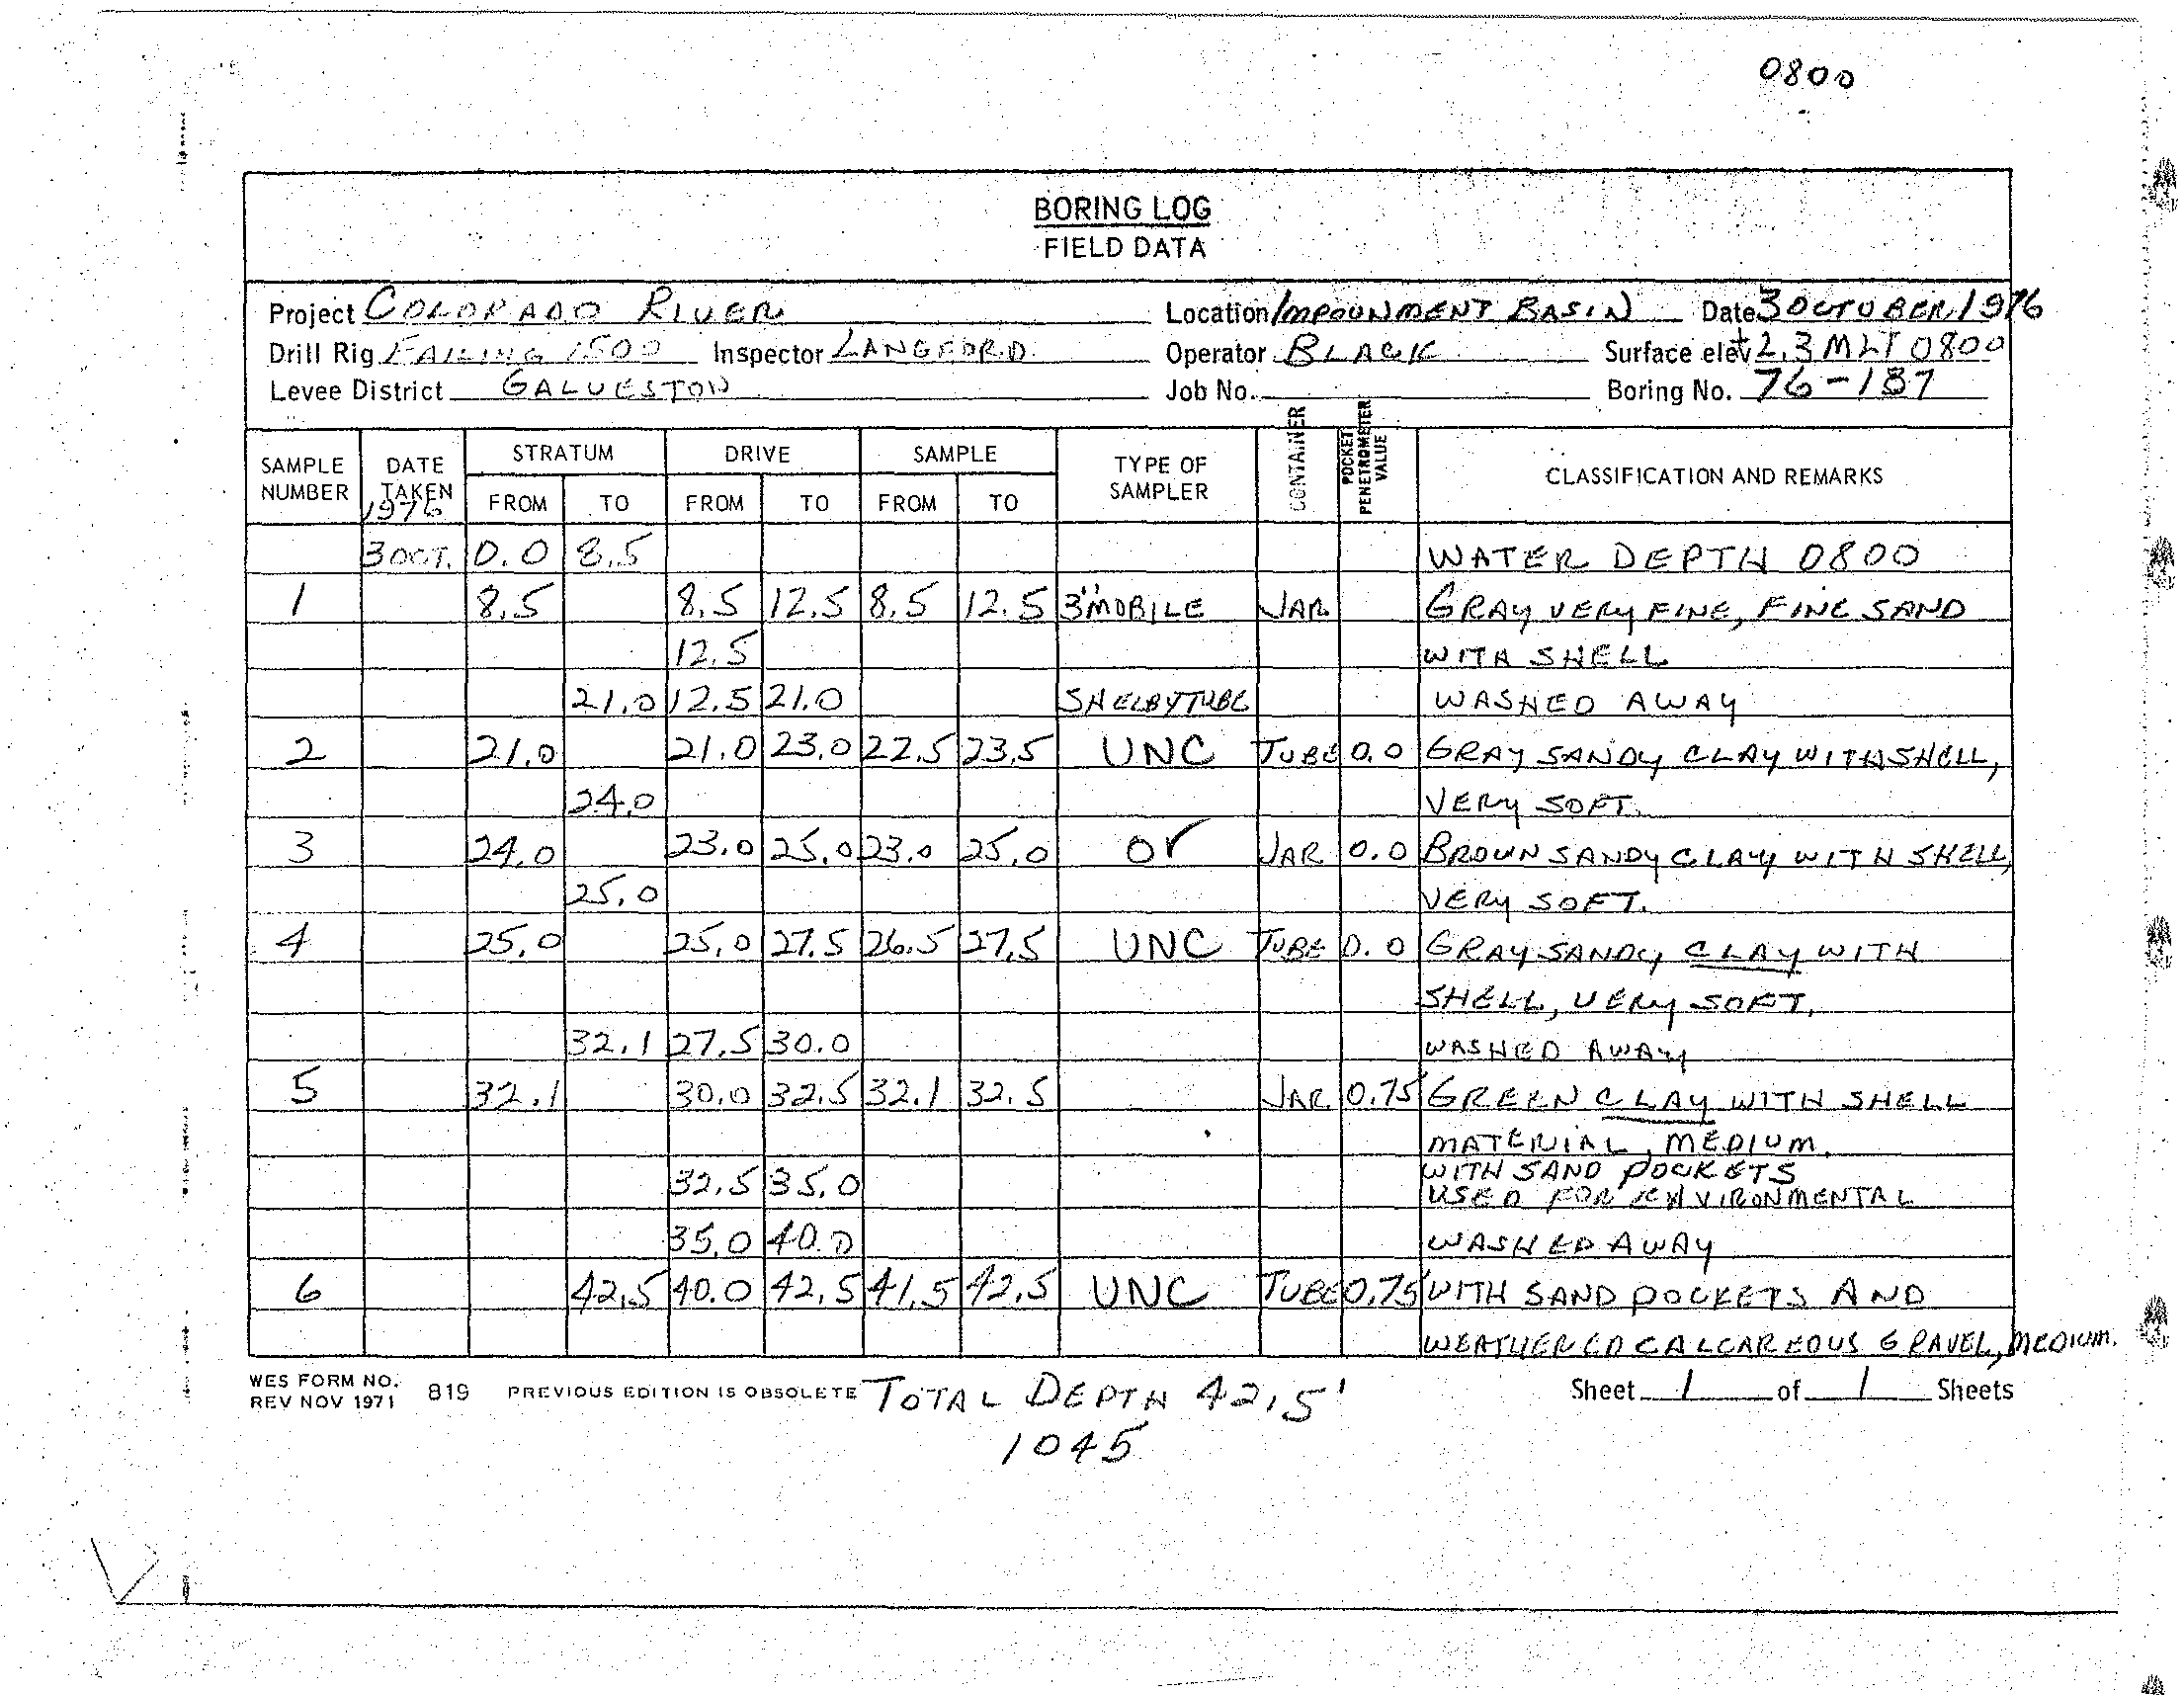 0800
BORING LOG
FIELD DATA
Project COLORADO RIVER Location IMPOUNMENT BASIN Date 3 OCTOBER 1976
Drill Rig FAILING 1500 Inspector LANGFORD Operator BLACK Surface elev +2.3 MLT 0800
Levee District GALVESTON Job No. Boring No. 76-187
SAMPLE NUMBER DATE TAKEN 1976 STRATUM FROM TO DRIVE FROM TO SAMPLE FROM TO TYPE OF SAMPLER CONTAINER POCKET PENETROMETER VALUE CLASSIFICATION AND REMARKS
3 OCT. 0.0 8.5 WATER DEPTH 0800
1 8.5 8.5 12.5 8.5 12.5 3"MOBILE JAR GRAY VERY FINE, FINE SAND
12.5 WITH SHELL
21.0 12.5 21.0 SHELBYTUBE WASHED AWAY
2 21.0 21.0 23.0 22.5 23.5 UNC TUBE 0.0 GRAY SANDY CLAY WITH SHELL,
24.0 VERY SOFT.
3 24.0 23.0 25.0 23.0 25.0 or JAR 0.0 BROWN SANDY CLAY WITH SHELL,
25.0 VERY SOFT.
4 25.0 25.0 27.5 26.5 27.5 UNC TUBE 0.0 GRAY SANDY CLAY WITH
SHELL, VERY SOFT.
32.1 27.5 30.0 WASHED AWAY
5 32.1 30.0 32.5 32.1 32.5 JAR 0.75 GREEN CLAY WITH SHELL
MATERIAL, MEDIUM.
WITH SAND POCKETS
32.5 35.0 USED FOR ENVIRONMENTAL
35.0 40.0 WASHED AWAY
6 42.5 40.0 42.5 41.5 42.5 UNC TUBE 0.75 WITH SAND POCKETS AND
WEATHERED CALCAREOUS GRAVEL, MEDIUM.
WES FORM NO. 819 PREVIOUS EDITION IS OBSOLETE TOTAL DEPTH 42.5' Sheet 1 of 1 Sheets
REV NOV 1971
1045